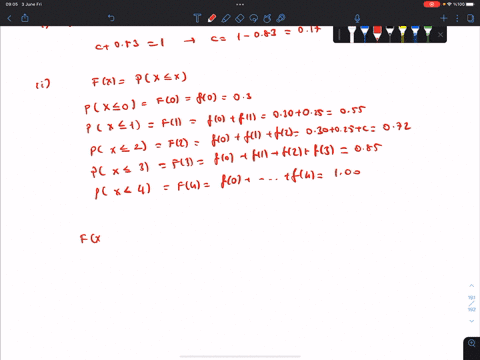 09:05 3 June Fri
%100
c+0.83 = 1 → c = 1 - 0.83 = 0.17
ii) F(x) = P(X≤x)
P(X≤0) = F(0) = f(0) = 0.3
P(X≤1) = F(1) = f(0) + f(1) = 0.30+0.25 = 0.55
P(X≤2) = F(2) = f(0) + f(1) + f(2) = 0.30+0.25+c = 0.72
P(X≤3) = F(3) = f(0) + f(1) + f(2) + f(3) = 0.85
P(X≤4) = F(4) = f(0) + --- + f(4) = 1.00
F(x